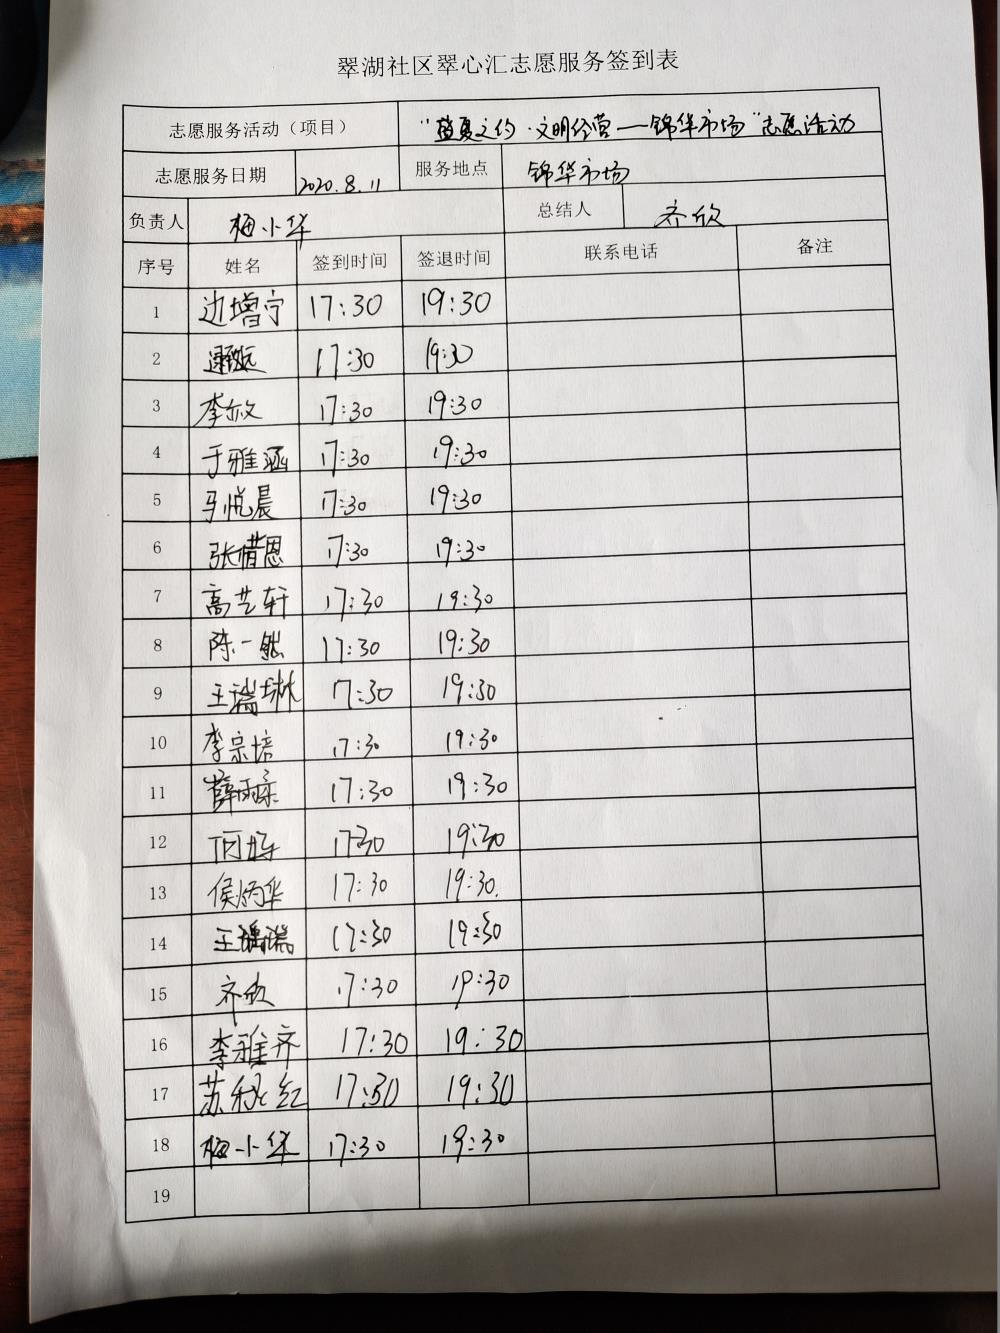 翠湖社区翠心汇志愿服务签到表
志愿服务活动（项目） “盛夏之约·文明经营——锦华市场”志愿活动
志愿服务日期 2020.8.11 服务地点 锦华市场
负责人 梅小华 总结人 齐欣
序号 姓名 签到时间 签退时间 联系电话 备注
1 边增宁 17:30 19:30
2 17:30 19:30
3 李放 17:30 19:30
4 于雅涵 17:30 19:30
5 马悦晨 17:30 19:30
6 张惜恩 17:30 19:30
7 高艺轩 17:30 19:30
8 陈一然 17:30 19:30
9 王瑞琳 17:30 19:30
10 李宗培 17:30 19:30
11 薛雨朵 17:30 19:30
12 17:30 19:30
13 侯炳华 17:30 19:30
14 王瑞 17:30 19:30
15 齐欣 17:30 19:30
16 李雅齐 17:30 19:30
17 苏秋红 17:30 19:30
18 梅小华 17:30 19:30
19